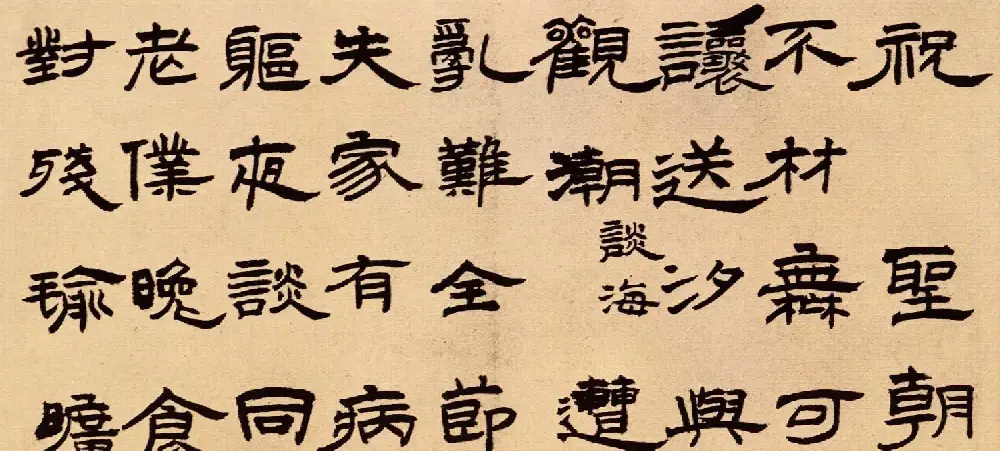 祝聖朝
不材橆可
讓送汐與
觀潮談海遭
亂難全節
失家有病
軀夜談同
老僕晚食
對殘瑜曠